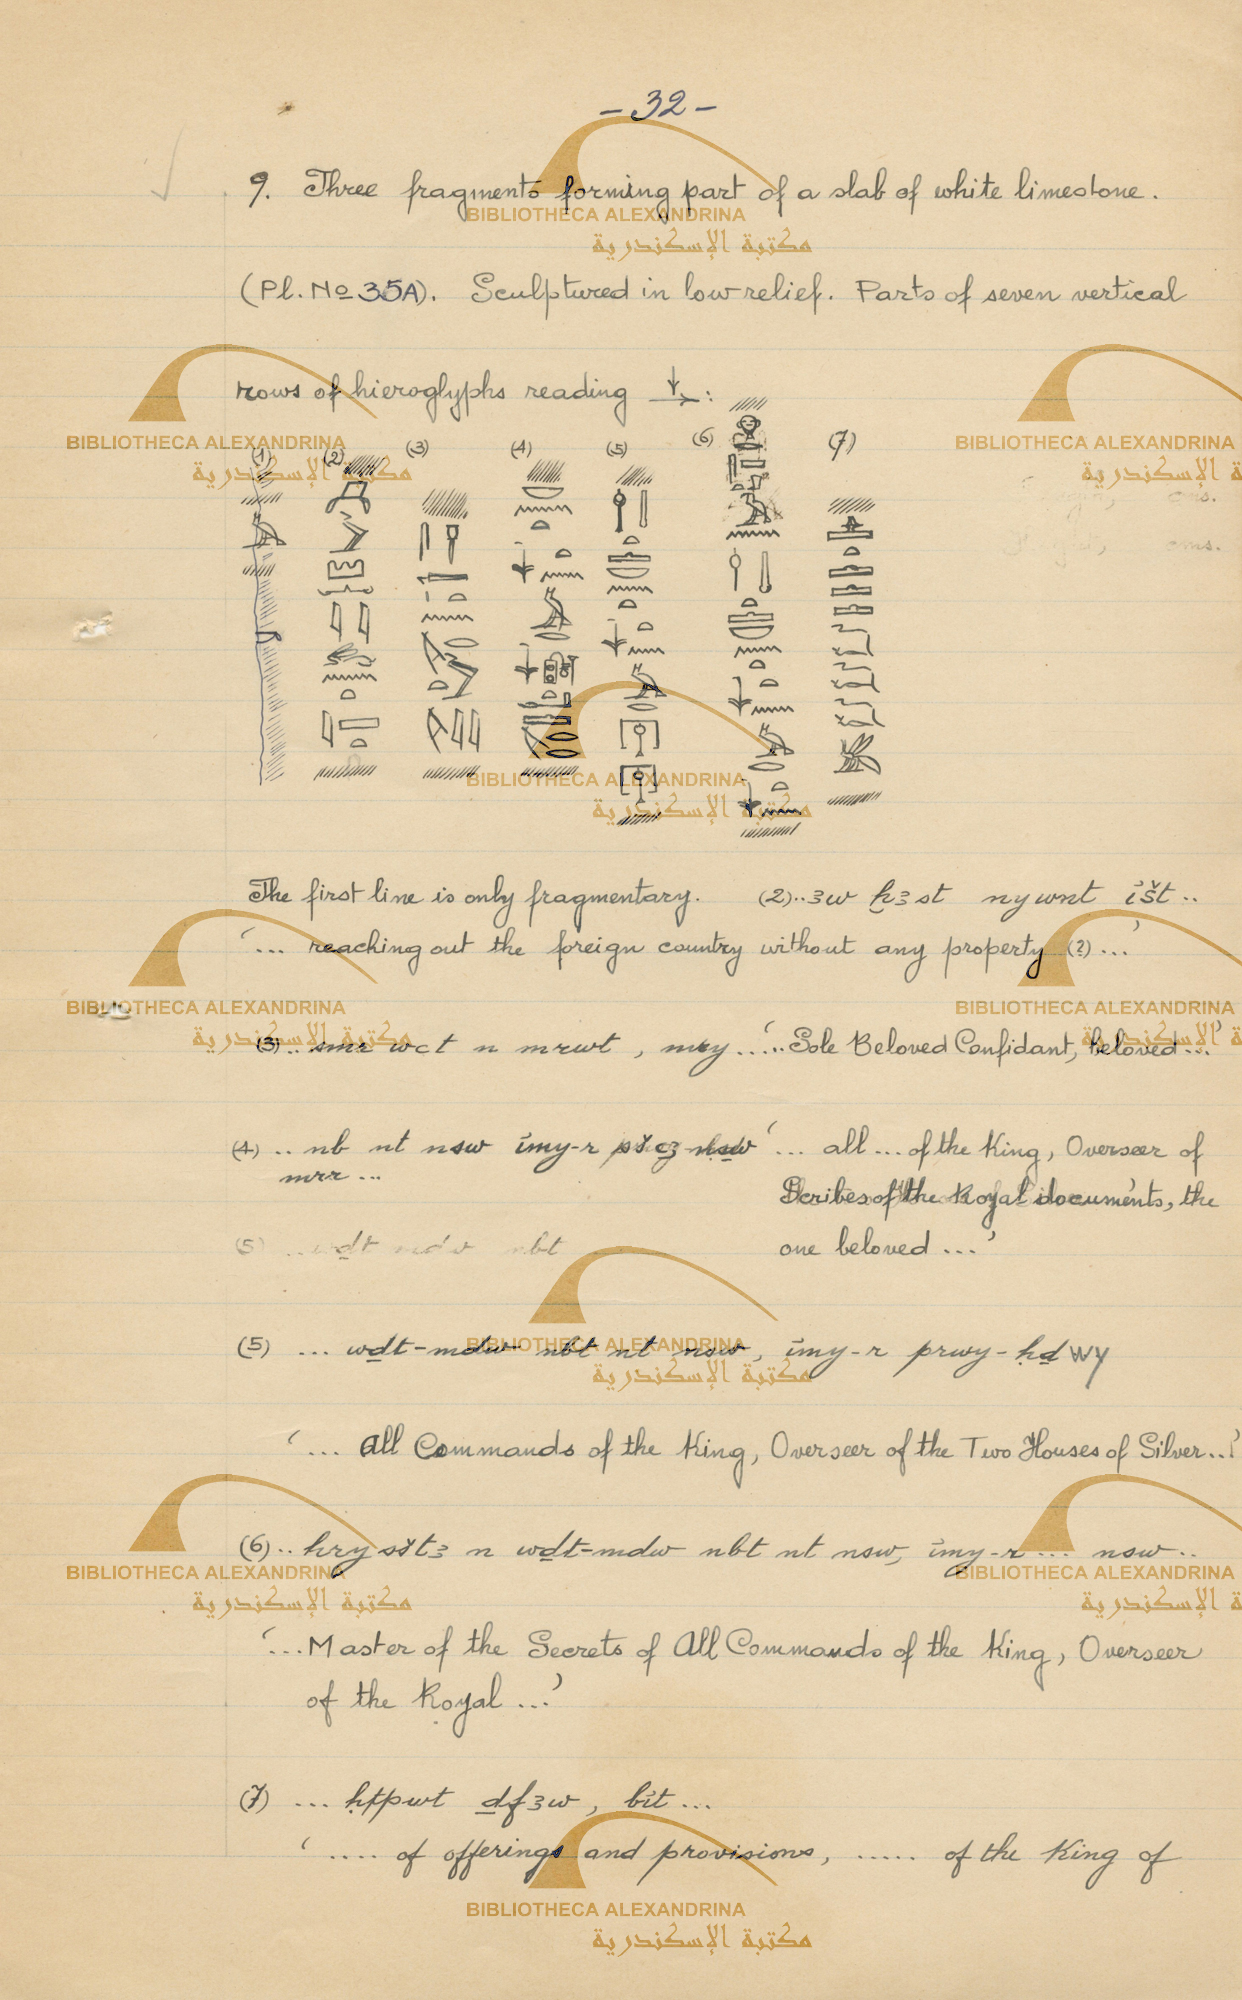 - 32 -
9. Three fragments forming part of a slab of white limestone.
(Pl. No 35A). Sculptured in low relief. Parts of seven vertical
rows of hieroglyphs reading ↓→:
(1) (2) (3) (4) (5) (6) (7)
cms.
cms.
The first line is only fragmentary. (2)..ꜣw ḫꜣst ny wnt išt ..
'... reaching out the foreign country without any property (?) ...'
(3) .. smr wct n mrwt, mry ..... 'Sole Beloved Confidant, beloved ...'
(4) .. nb nt nsw imy-r '... all ... of the King, Overseer of
mrr ...
Scribes of the Royal documents, the
(5) ... wḏt mdw nbt
one beloved ...'
(5) ... wḏt-mdw nbt nt nsw, imy-r prwy-ḥḏwy
'... All Commands of the King, Overseer of the Two Houses of Silver...'
(6) .. ḥry sštꜣ n wḏt-mdw nbt nt nsw, imy-r ... nsw ..
'... Master of the Secrets of All Commands of the King, Overseer
of the Royal ...'
(7) ... ḥtpwt ḏfꜣw, bit ...
'.... of offerings and provisions, ..... of the King of
BIBLIOTHECA ALEXANDRINA
مكتبة الإسكندرية